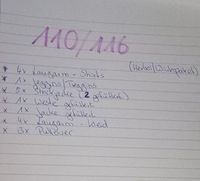 110/116
(Herbst/Winterpaket)
* 4x Langarm-Shirts
* 1x Jeggins/Treggins
* 5x Strickjacke (2 gefüttert)
* 1x Weste gefüttert
* 1x Jacke gefüttert
* 4x Langarm-Kleid
* 3x Pullover